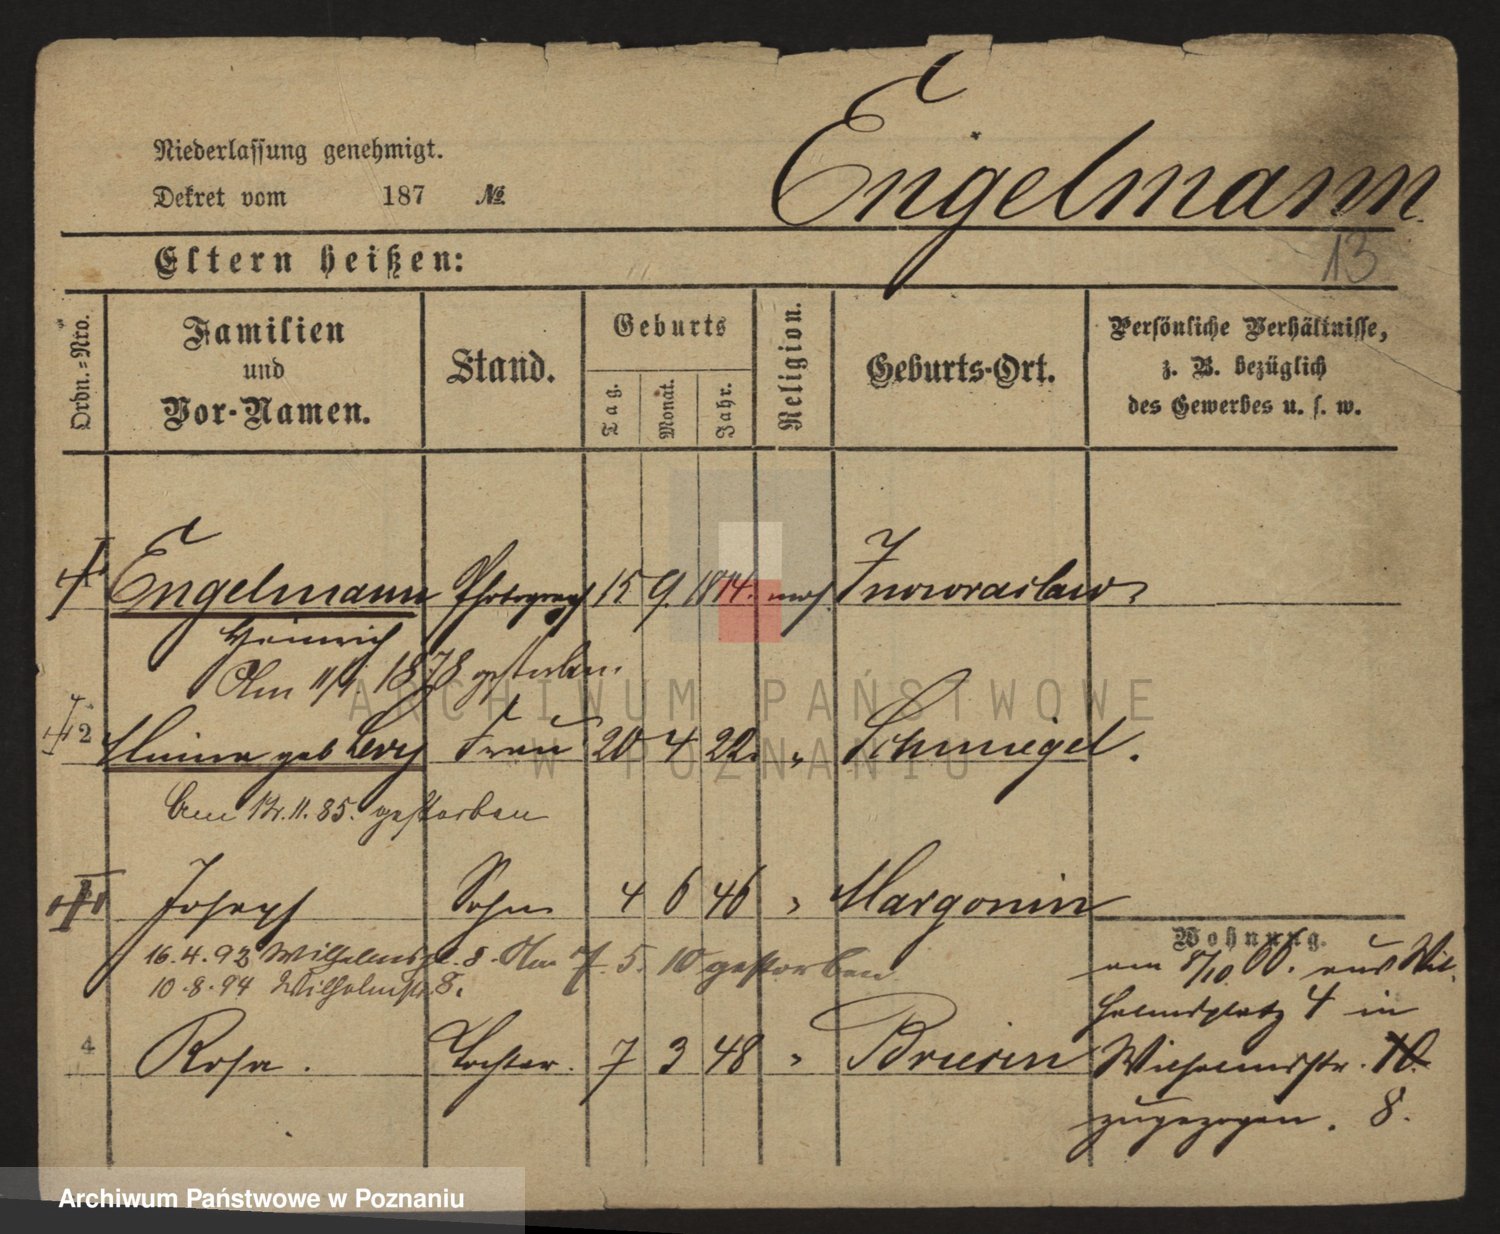 Engelmann
Niederlassung genehmigt.
Dekret vom 187 №
13
Eltern heißen:
Ordn.=Nro.
Familien
und
Vor-Namen.
Stand.
Geburts
Tag.
Monat.
Jahr.
Religion.
Geburts-Ort.
Persönliche Verhältnisse,
z. B. bezüglich
des Gewerbes u. s. w.
Engelmann Photograph 15 9. 1814. mos. Inowraclaw
Heinrich
Am 11/1 1878 gestorben.
2 Minna geb Levy Frau 20 4 22. " Schmiegel.
Am 12.11.85. gestorben
Joseph Sohn 4 6 46 " Margonin
16.4.93 Wilhelmspl. 8. Am 7. 5. 10 gestorben
10.8.94 Wilhelmstr. 8.
4 Rosa. Tochter. 7 3 48 " Briesen
Wohnung.
am 8/10 00. aus Wil-
helmsplatz 4 in
Wilhelmstr. 10.
zugezogen. 8.
ARCHIWUM PAŃSTWOWE
W POZNANIU
Archiwum Państwowe w Poznaniu